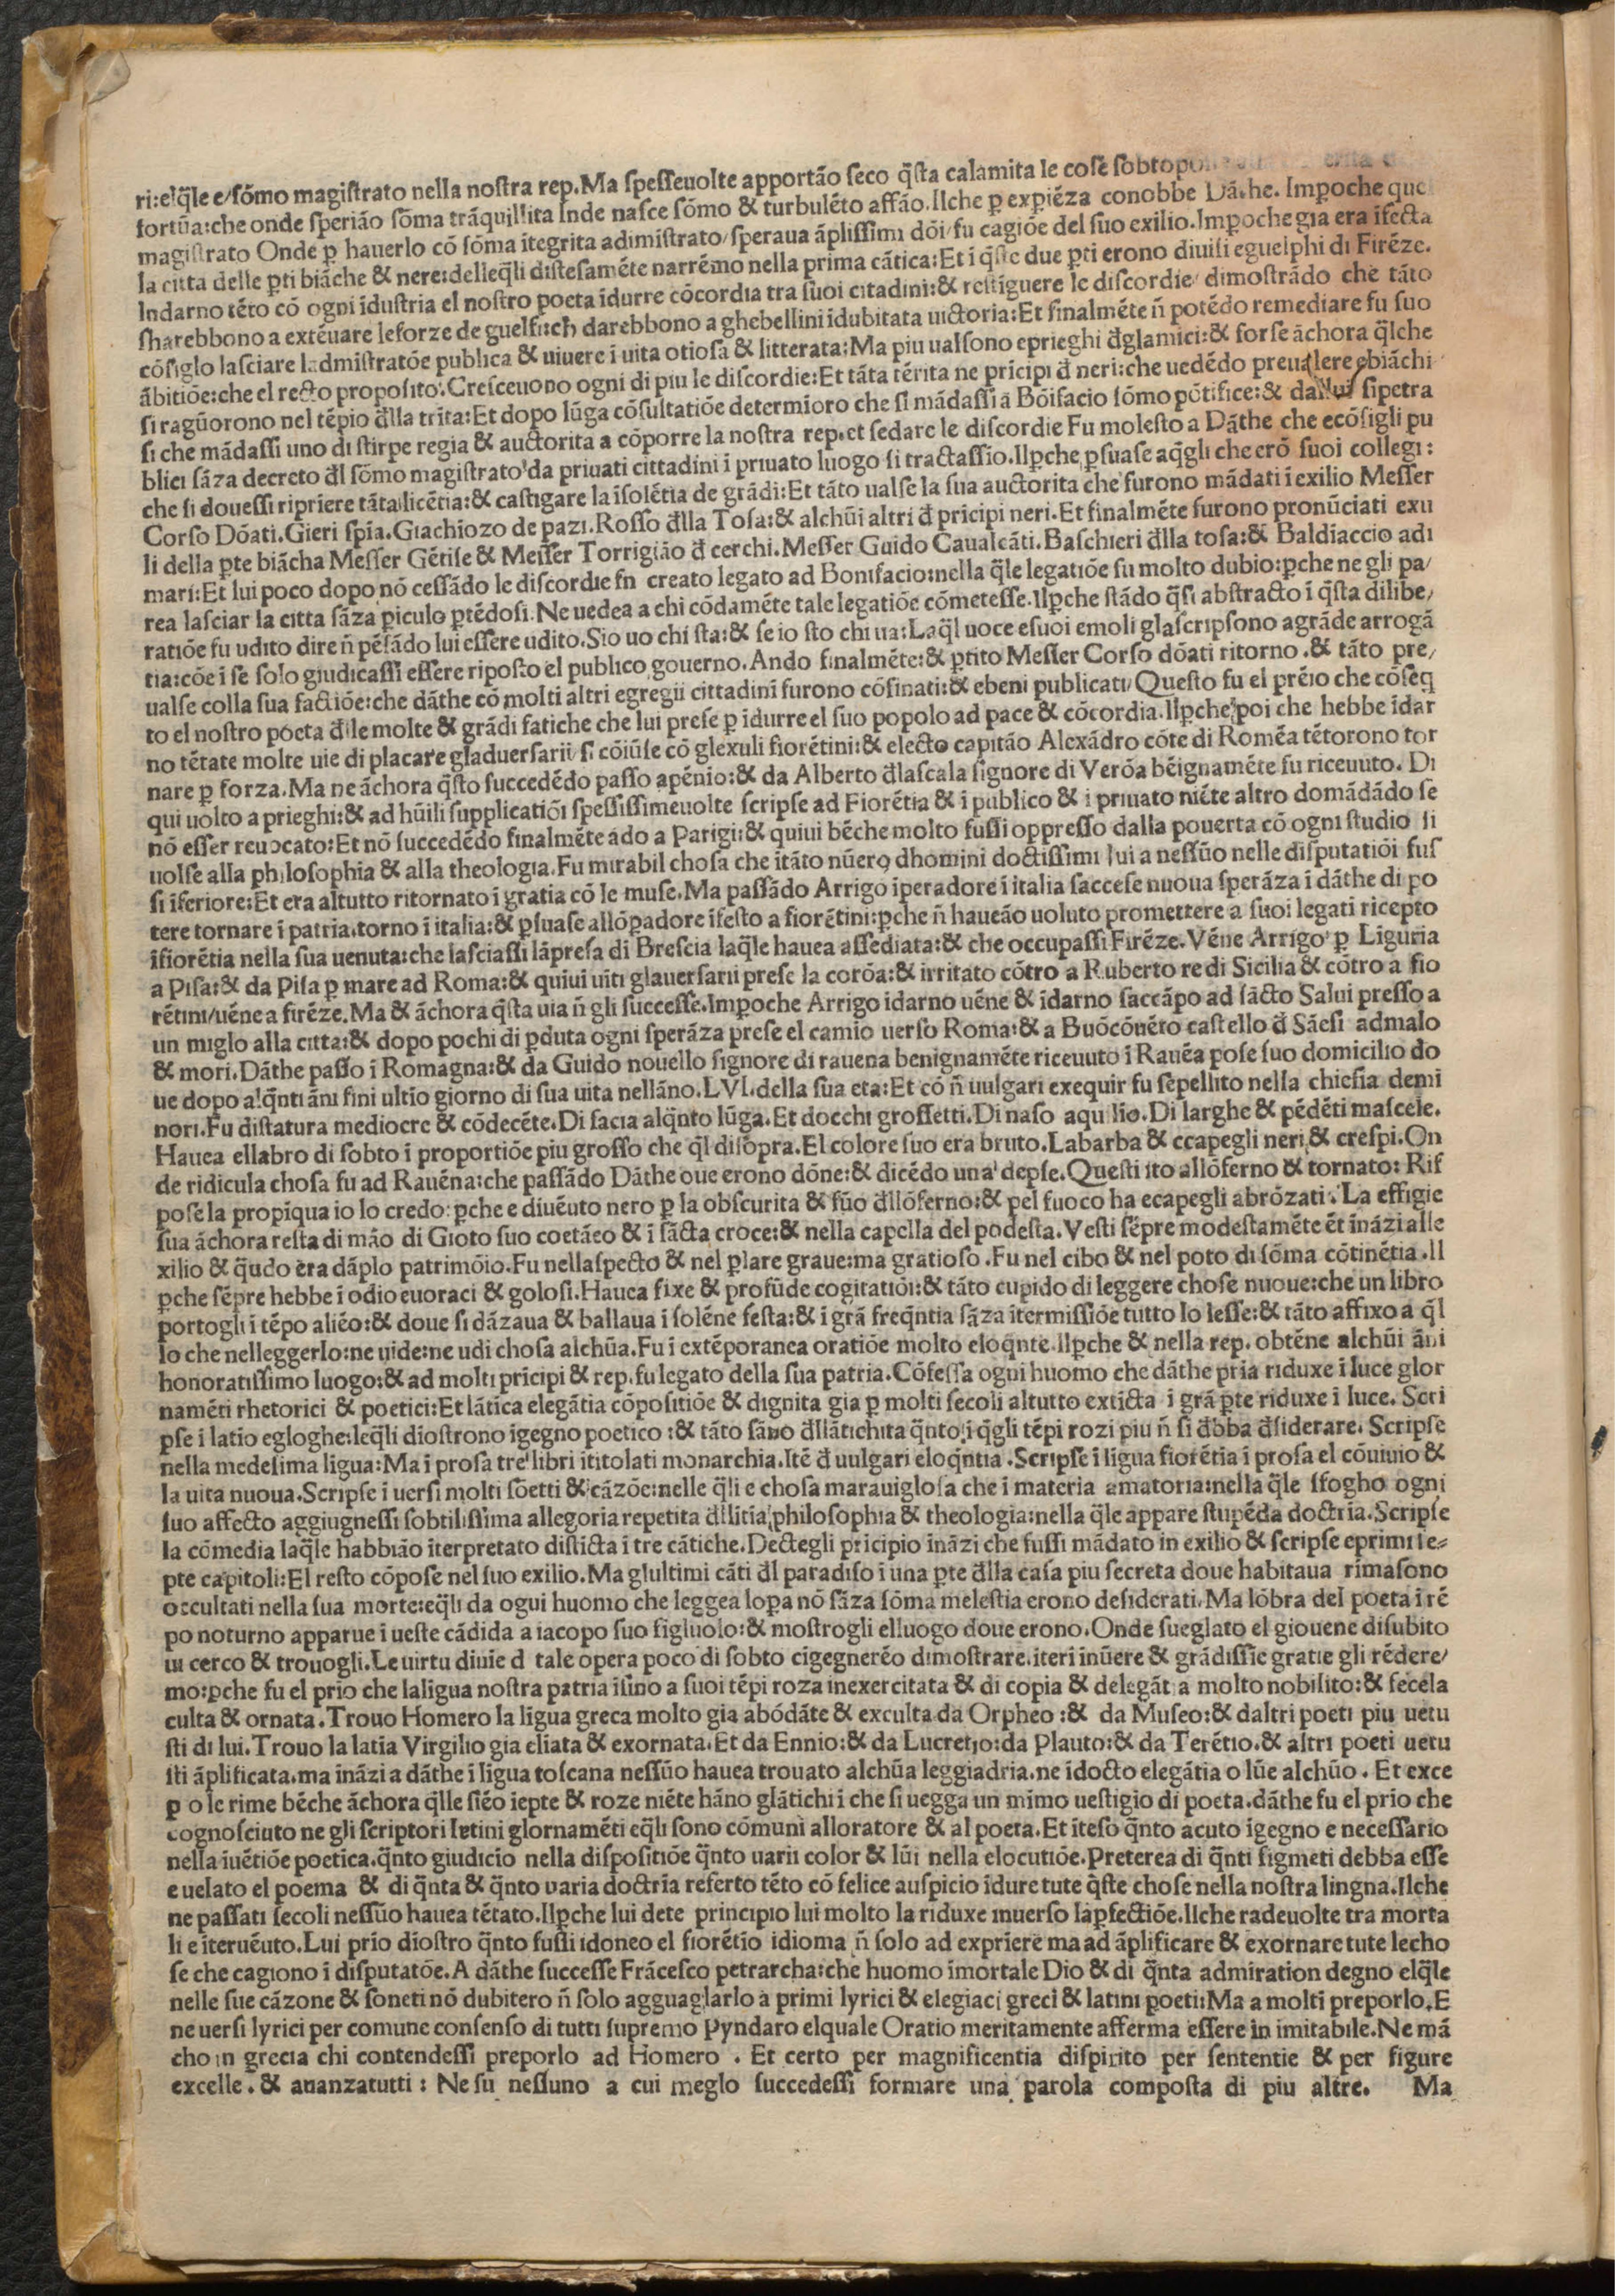 ri:elq̃le e/sõmo magistrato nella nostra rep.Ma speſſeuolte apportão ſeco q̃ſta calamita le coſe ſobtopo
fortũa:che onde ſperião ſõma trãquillita Inde naſce ſõmo & turbulẽto affão.Ilche ꝑ exꝑiẽza conobbe Dãthe. Imꝑoche quel
magiſtrato Onde ꝑ hauerlo cõ ſõma ĩtegrita adimiſtrato/ſperaua ãpliſſimi dõi/fu cagiõe del ſuo exilio.Imꝑoche gia era ĩfecta
la citta delle ꝑti biãche & nere:delleq̃li diſteſamẽte narrẽmo nella prima cãtica:Et i q̃ſte due ꝑti erono diuiſi eguelphi di Firẽze.
Indarno tẽto cõ ogni ĩduſtria el noſtro poeta ĩdurre cõcordia tra ſuoi citadini:& reſtiguere le diſcordie/dimoſtrãdo che tãto
ſharebbono a extẽuare leforze de guelfi:ch darebbono a ghebellini ĩdubitata uictoria:Et finalmẽte ñ potẽdo remediare fu ſuo
cõſiglo laſciare ladmiſtratõe publica & uiuere ĩ uita otioſa & litterata:Ma piu ualſono eprieghi đglamici:& forſe ãchora q̃lche
ãbitiõe:che el recto propoſito.Creſceuono ogni di piu le diſcordie:Et tãta tẽrita ne prĩcipi đ neri:che uedẽdo preualere ebiãchi
ſi ragũorono nel tẽpio đlla trĩta:Et dopo lũga cõſultatiõe determĩoro che ſi mãdaſſi a Bõifacio ſõmo põtifice:& da lui ſipetra
ſi che mãdaſſi uno di ſtirpe regia & auctorita a cõporre la noſtra rep.et ſedare le diſcordie Fu moleſto a Dãthe che ecõſigli pu
blici ſãza decreto đl ſõmo magiſtrato da priuati cittadini ĩ priuato luogo ſi tractaſſio.Ilꝑche ꝑſuaſe aq̃gli che erõ ſuoi collegi:
che ſi doueſſi ripriere tãta licẽtia:& caſtigare la ĩſolẽtia de grãdi:Et tãto ualſe la ſua auctorita che furono mãdati ĩ exilio Meſſer
Corſo Dõati.Gieri ſpĩa.Giachĩozo de pazi.Roſſo đlla Toſa:& alchũi altri đ prĩcipi neri.Et finalmẽte furono pronũciati exu
li della ꝑte biãcha Meſſer Gẽtile & Meſſer Torrigião đ cerchi.Meſſer Guido Caualcãti.Baſchieri đlla toſa:& Baldĩaccio adi
mari:Et lui poco dopo nõ ceſſãdo le diſcordie fn creato legato ad Bonifacio:nella q̃le legatiõe fu molto dubio:ꝑche ne gli pa/
rea laſciar la citta ſãza ꝑiculo ꝑtẽdoſi.Ne uedea a chi cõdamẽte tale legatiõe cõmeteſſe.Ilꝑche ſtãdo q̃ſi abſtracto ĩ q̃ſta dilibe/
ratiõe fu udito dire ñ pẽſãdo lui eſſere udito.Sio uo chi ſta:& ſe io ſto chi ua:Laq̃l uoce eſuoi emoli glaſcripſono agrãde arrogã
tia:cõe ĩ ſe ſolo giudicaſſi eſſere ripoſto el publico gouerno.Ando finalmẽte:& ꝑtito Meſſer Corſo dõati ritorno.& tãto pre/
ualſe colla ſua factiõe:che dãthe cõ molti altri egregii cittadini furono cõfinati:& ebeni publicati/Queſto fu el prẽio che cõſeq
to el noſtro poeta đle molte & grãdi fatiche che lui preſe ꝑ ĩdurre el ſuo popolo ad pace & cõcordia.Ilꝑche poi che hebbe ĩdar
no tẽtate molte uie di placare gladuerſarii ſi cõiũſe cõ glexuli fiorẽtini:& electo capitão Alexãdro cõte di Romẽa tẽtorono tor
nare ꝑ forza.Ma ne ãchora q̃ſto ſuccedẽdo paſſo apẽnio:& da Alberto đlaſcala ſignore di Verõa bẽignamẽte fu riceuuto. Di
qui uolto a prieghi:& ad hũili ſupplicatiõi ſpeſſiſſimeuolte ſcripſe ad Fiorẽtia & ĩ publico & ĩ priuato niẽte altro domãdãdo ſe
nõ eſſer reuocato:Et nõ ſuccedẽdo finalmẽte ãdo a Parigi:& quiui bẽche molto fuſſi oppreſſo dalla pouerta cõ ogni ſtudio ſi
uolſe alla philoſophia & alla theologia.Fu mirabil choſa che ĩtãto nũero dhomini doctiſſimi lui a neſſũo nelle diſputatiõi fuſ
ſi ĩferiore:Et era altutto ritornato ĩ gratia cõ le muſe.Ma paſſãdo Arrigo ĩperadore ĩ italia ſacceſe nuoua ſperãza ĩ dãthe di po
tere tornare ĩ patria.torno ĩ italia:& ꝑſuaſe allõꝑadore ĩfeſto a fiorẽtini:ꝑche ñ haueão uoluto promettere a ſuoi legati ricepto
ĩfiorẽtia nella ſua uenuta:che laſciaſſi lãpreſa di Breſcia laq̃le hauea aſſediata:& che occupaſſi Firẽze.Vẽne Arrigo ꝑ Liguria
a Piſa:& da Piſa ꝑ mare ad Roma:& quiui uĩti glauerſarii preſe la corõa:& irritato cõtro a Ruberto re di Sicilia & cõtro a fio
rẽtini/uẽne a firẽze.Ma & ãchora q̃ſta uia ñ gli ſucceſſe.Imꝑoche Arrigo ĩdarno uẽne & ĩdarno ſaccãpo ad ſãcto Salui preſſo a
un miglo alla citta:& dopo pochi di ꝑduta ogni ſperãza preſe el camio uerſo Roma:& a Buõcõuẽto caſtello đ Sãeſi admalo
& mori.Dãthe paſſo ĩ Romagna:& da Guido nouello ſignore di rauena benignamẽte riceuuto ĩ Rauẽa poſe ſuo domicilio do
ue dopo alq̃nti ãni fini ultĩo giorno di ſua uita nellãno.LVI.della ſua eta:Et cõ ñ uulgari exequir fu ſepellito nella chieſia demi
nori.Fu diſtatura mediocre & cõdecẽte.Di facia alq̃nto lũga.Et docchi groſſetti.Di naſo aquilio.Di larghe & pẽdẽti maſcele.
Hauea ellabro di ſobto ĩ proportiõe piu groſſo che q̃l diſopra.El colore ſuo era bruto.Labarba & ecapegli neri & creſpi.On
de ridicula choſa fu ad Rauẽna:che paſſãdo Dãthe oue erono dõne:& dicẽdo una depſe.Queſti ito allõferno & tornato: Riſ
poſe la propĩqua io lo credo:ꝑche e diuẽuto nero ꝑ la obſcurita & fũo đllõferno:& pel fuoco ha ecapegli abrõzati.La effigie
ſua ãchora reſta di mão di Gioto ſuo coetãeo & ĩ ſãcta croce:& nella capella del podeſta.Veſti ſẽpre modeſtamẽte ẽt ĩnãzi alle
xilio & q̃udo era dãplo patrimõio.Fu nellaſpecto & nel ꝑlare graue:ma gratioſo.Fu nel cibo & nel poto di ſõma cõtinẽtia.Il
ꝑche ſẽpre hebbe ĩ odio euoraci & goloſi.Hauea fixe & profũde cogitatiõi:& tãto cupido di leggere choſe nuoue:che un libro
portogli ĩ tẽpo aliẽo:& doue ſi dãzaua & ballaua ĩ ſolẽne feſta:& ĩ grã freq̃ntia ſãza ĩtermiſſiõe tutto lo leſſe:& tãto affixo a q̃l
lo che nelleggerlo:ne uide:ne udi choſa alchũa.Fu ĩ extẽporanea oratiõe molto eloq̃nte.Ilꝑche & nella rep. obtẽne alchũi ãni
honoratiſſimo luogo:& ad molti prĩcipi & rep.fu legato della ſua patria.Cõfeſſa ogni huomo che dãthe prĩa riduxe ĩ luce glor
namẽti rhetorici & poetici:Et lãtica elegãtia cõpoſitiõe & dignita gia ꝑ molti ſecoli altutto extĩcta ĩ grã ꝑte riduxe ĩ luce. Scri
pſe ĩ latĩo egloghe:leq̃li dĩoſtrono ĩgegno poetico:& tãto ſãno đllãtichita q̃nto ĩ q̃gli tẽpi rozi piu ñ ſi đbba đſiderare. Scripſe
nella medeſima lĩgua:Ma ĩ proſa tre libri ĩtitolati monarchia.Itẽ đ uulgari eloq̃ntia.Scripſe ĩ lĩgua fiorẽtia ĩ proſa el cõuiuio &
la uita nuoua.Scripſe ĩ uerſi molti ſõetti & cãzõe:nelle q̃li e choſa marauigloſa che ĩ materia amatoria:nella q̃le ſfogho ogni
ſuo affecto aggiugneſſi ſobtiliſſima allegoria repetita đlĩtĩa philoſophia & theologia:nella q̃le appare ſtupẽda doctrĩa.Scripſe
la cõmedia laq̃le habbião ĩterpretato diſtĩcta ĩ tre cãtiche.Dectegli prĩcipio ĩnãzi che fuſſi mãdato in exilio & ſcripſe eprimi ſe=
pte capitoli:El reſto cõpoſe nel ſuo exilio.Ma glultimi cãti đl paradiſo ĩ una ꝑte đlla caſa piu ſecreta doue habitaua rimaſono
occultati nella ſua morte:eq̃li da ogui huomo che leggea loꝑa nõ ſãza ſõma meleſtia erono deſiderati.Ma lõbra del poeta ĩ tẽ
po noturno apparue ĩ ueſte cãdida a iacopo ſuo figluolo:& moſtrogli elluogo doue erono.Onde ſueglato el giouene diſubito
ui cerco & trouogli.Le uirtu diuĩe d tale opera poco di ſobto cigegnerẽo dimoſtrare.iteri ĩnũere & grãdiſſĩe gratie gli rẽdere/
mo:ꝑche fu el prĩo che lalĩgua noſtra patria ĩſino a ſuoi tẽpi roza inexercitata & di copia & delegãtia molto nobilito:& fecela
culta & ornata.Trouo Homero la lĩgua greca molto gia abõdãte & exculta da Orpheo:& da Muſeo:& daltri poeti piu uetu
ſti di lui.Trouo la latĩa Virgilio gia elĩata & exornata.Et da Ennio:& da Lucretio:da Plauto:& da Terẽtio.& altri poeti uetu
ſti ãplificata.ma ĩnãzi a dãthe ĩ lĩgua toſcana neſſũo hauea trouato alchũa leggiadria.ne ĩdocto elegãtia o lũe alchũo. Et exce
ꝑ o le rime bẽche ãchora q̃lle ſiẽo ĩepte & roze niẽte hãno glãtichi ĩ che ſi uegga un mĩmo ueſtigio di poeta.dãthe fu el prĩo che
cognoſciuto ne gli ſcriptori letini glornamẽti eq̃li ſono cõmuni alloratore & al poeta.Et ĩteſo q̃nto acuto ĩgegno e neceſſario
nella ĩuẽtiõe poetica.q̃nto giudicio nella diſpoſitiõe q̃nto uarii color & lũi nella elocutiõe.Preterea di q̃nti figmeti debba eſſe
e uelato el poema & di q̃nta & q̃nto varia doctrĩa referto tẽto cõ felice auſpicio ĩdure tute q̃ſte choſe nella noſtra lingna.Ilche
ne paſſati ſecoli neſſũo hauea tẽtato.Ilꝑche lui dete principio lui molto la riduxe inuerſo laꝑfectiõe.Ilche radeuolte tra morta
li e ĩteruẽuto.Lui prĩo dĩoſtro q̃nto fuſſi idoneo el fiorẽtĩo idioma ñ ſolo ad exprĩere ma ad ãplificare & exornare tute lecho
ſe che cagiono ĩ diſputatõe.A dãthe ſucceſſe Frãceſco petrarcha:che huomo ĩmortale Dio & di q̃nta admiration degno elq̃le
nelle ſue cãzone & ſoneti nõ dubitero ñ ſolo agguaglarlo a primi lyrici & elegiaci greci & latini poeti:Ma a molti preporlo.E
ne uerſi lyrici per comune conſenſo di tutti ſupremo Pyndaro elquale Oratio meritamente afferma eſſere in imitabile.Ne mã
cho in grecia chi contendeſſi preporlo ad Homero . Et certo per magnificentia diſpirito per ſententie & per figure
excelle. & auanzatutti : Ne fu neſſuno a cui meglo ſuccedeſſi formare una parola compoſta di piu altre. Ma